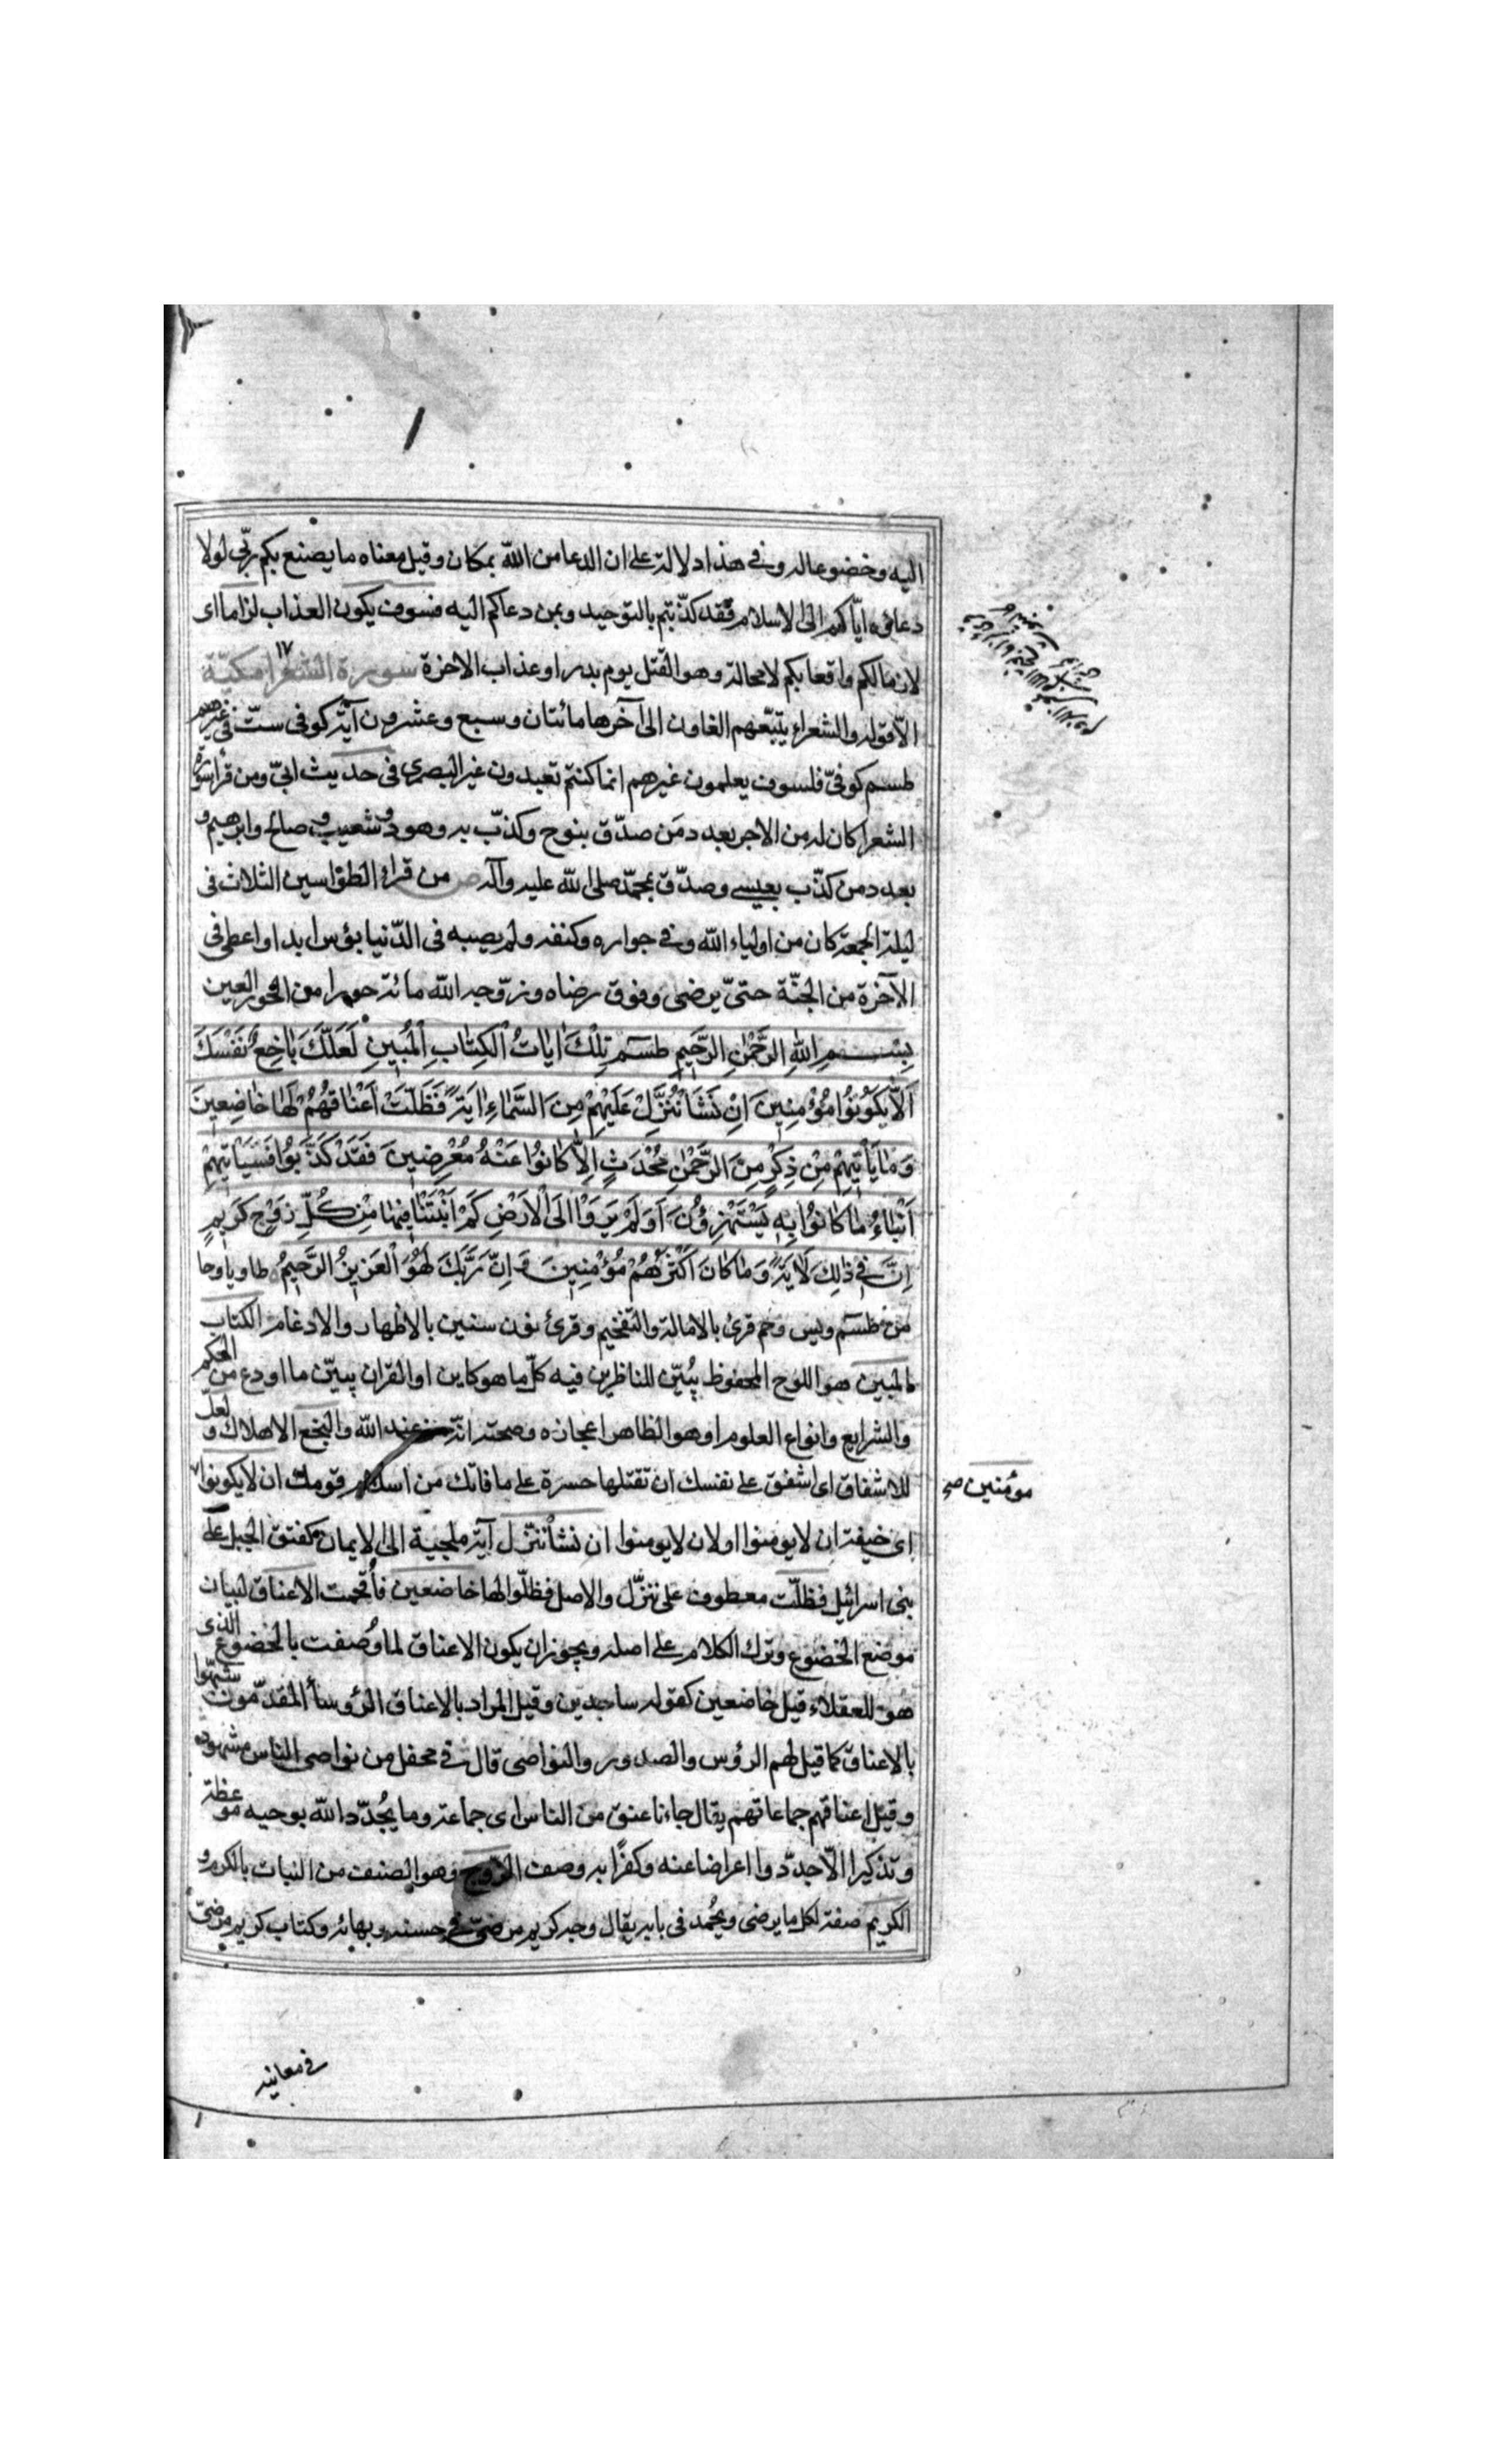 اليه وخضوعا له وفي هذا دلالة على ان الدعا من الله بمكان وقيل معناه ما يصنع بكم ربّي لولا
دعاؤه ايّاكم الى الاسلام فقد كذّبتم بالتوحيد وبمن دعاكم اليه فسوف يكون العذاب لزاما اى
لازما لكم واقعا بكم لا محالة وهو القتل يوم بدر او عذاب الاخرة سورة الشعرا مكيّة
الّا قوله والشعراء يتّبعهم الغاون الى آخرها مائتان وسبع وعشرون آية كوفى ستّ فى غيرهم
طسم كوفىّ فلسوف يعلمون غيرهم انما كنتم تعبدون غير البصرى فى حديث ابىّ ومن قرأ سورة
الشعرا كان له من الاجر بعدد من صدّق بنوح وكذّب به وهود وشعيب وصالح وابرهيم و
بعدد من كذّب بعيسى وصدّق بمحمّد صلى الله عليه وآله ص من قراء الطواسين الثلاث فى
ليلة الجمعة كان من اولياء الله وفي جواره وكنفه ولم يصبه فى الدّنيا بؤس ابدا واعطى فى
الآخرة من الجنّة حتىّ يرضى وفوق رضاه وزوّجه الله مائة حورا من الحور العين
بِسْمِ اللهِ الرَّحْمٰنِ الرَّحِيمِ طسم تِلْكَ اٰيَاتُ الْكِتَابِ الْمُبِينِ لَعَلَّكَ بَاخِعٌ نَفْسَكَ
اَلَّا يَكُونُوا مُؤْمِنِينَ اِنْ نَشَأْ نُنَزِّلْ عَلَيْهِمْ مِنَ السَّمَاءِ اٰيَةً فَظَلَّتْ اَعْنَاقُهُمْ لَهَا خَاضِعِينَ
وَمَا يَأْتِيهِمْ مِنْ ذِكْرٍ مِنَ الرَّحْمٰنِ مُحْدَثٍ اِلَّا كَانُوا عَنْهُ مُعْرِضِينَ فَقَدْ كَذَّبُوا فَسَيَأْتِيهِمْ
اَنْبَاءُ مَا كَانُوا بِهِ يَسْتَهْزِؤُنَ اَوَلَمْ يَرَوْا اِلَى الْاَرْضِ كَمْ اَنْبَتْنَا فِيهَا مِنْ كُلِّ زَوْجٍ كَرِيمٍ
اِنَّ فِي ذٰلِكَ لَاٰيَةً وَمَا كَانَ اَكْثَرُهُمْ مُؤْمِنِينَ وَاِنَّ رَبَّكَ لَهُوَ الْعَزِيزُ الرَّحِيمُ طا ويا وحا
من طسم ويس وحم قرئ بالامالة والتفخيم وقرئ نون سنين بالاظهار والادغام الكتاب
المبين هو اللوح المحفوظ يبُيّن للناظرين فيه كلّ ما هو كاين او القران يبيّن ما اودع من الحكم
والشرايع وانواع العلوم او هو الظاهر اعجازه وصحته انّه من عند الله والبخع الاهلاك و لعلّ
للاشفاق اى اشفق على نفسك ان تقتلها حسرة على ما فاتك من اسلام قومك ان لا يكونوا
مؤمنين صح
اى خيفة ان لا يومنوا او لان لا يومنوا ان نشأ ننزّل آية ملجية الى الايمان كفتق الجبل على
بنى اسرائيل فظلّت معطوف على ننزّل والاصل فظلّوا لها خاضعين فأقحمت الاعناق لبيان
موضع الخضوع وترك الكلام على اصله ويجوز ان يكون الاعناق لما وُصفت بالخضوع الذى
هو للعقلاء قيل خاضعين كقوله ساجدين وقيل المراد بالاعناق الرؤسأ المقدّمون شبّهوا
بالاعناق كما قيل لهم الرؤس والصدور والنواصى قال فى محفل من نواصى الناس مشهود
وقيل اعناقهم جماعاتهم يقال جاءنا عنق من الناس اى جماعة وما يُجدّد الله بوحيه موعظة
وتذكيرا الّا جدّدوا اعراضا عنه وكفرًا به وصف الزوج وهو الصنف من النبات بالكرم و
الكريم صفة لكل ما يرضى ويُحمد فى بابه يقال وجه كريم مرضىّ فى حسنه وبهائه وكتاب كريم مرضىّ
فى معانيه